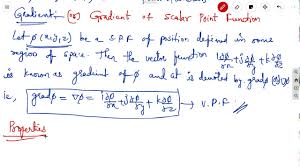 Gradient (or) Gradient of Scalar Point Function
Let ϕ(x,y,z) be a S.P.F of position defined in some
region of space. Then the vector function i∂ϕ/∂x + j∂ϕ/∂y + k∂ϕ/∂z
is known as gradient of ϕ and it is denoted by gradϕ (or) ∇ϕ
ie, gradϕ = ∇ϕ = i∂ϕ/∂x + j∂ϕ/∂y + k∂ϕ/∂z → V.P.F
Properties